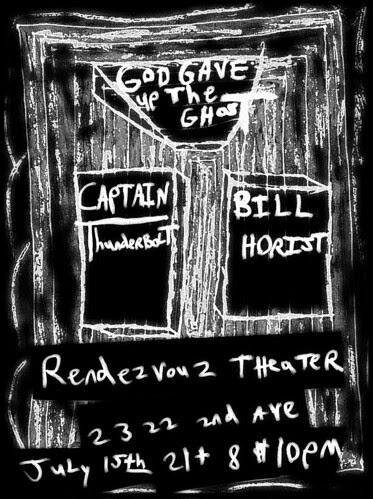 GOD GAVE
up The
GHOST
CAPTAIN
ThunderBolT
BILL
HORIST
Rendezvouz THeaTeR
2322 2nd Ave
July 15th 21+ 8 $ 10pm